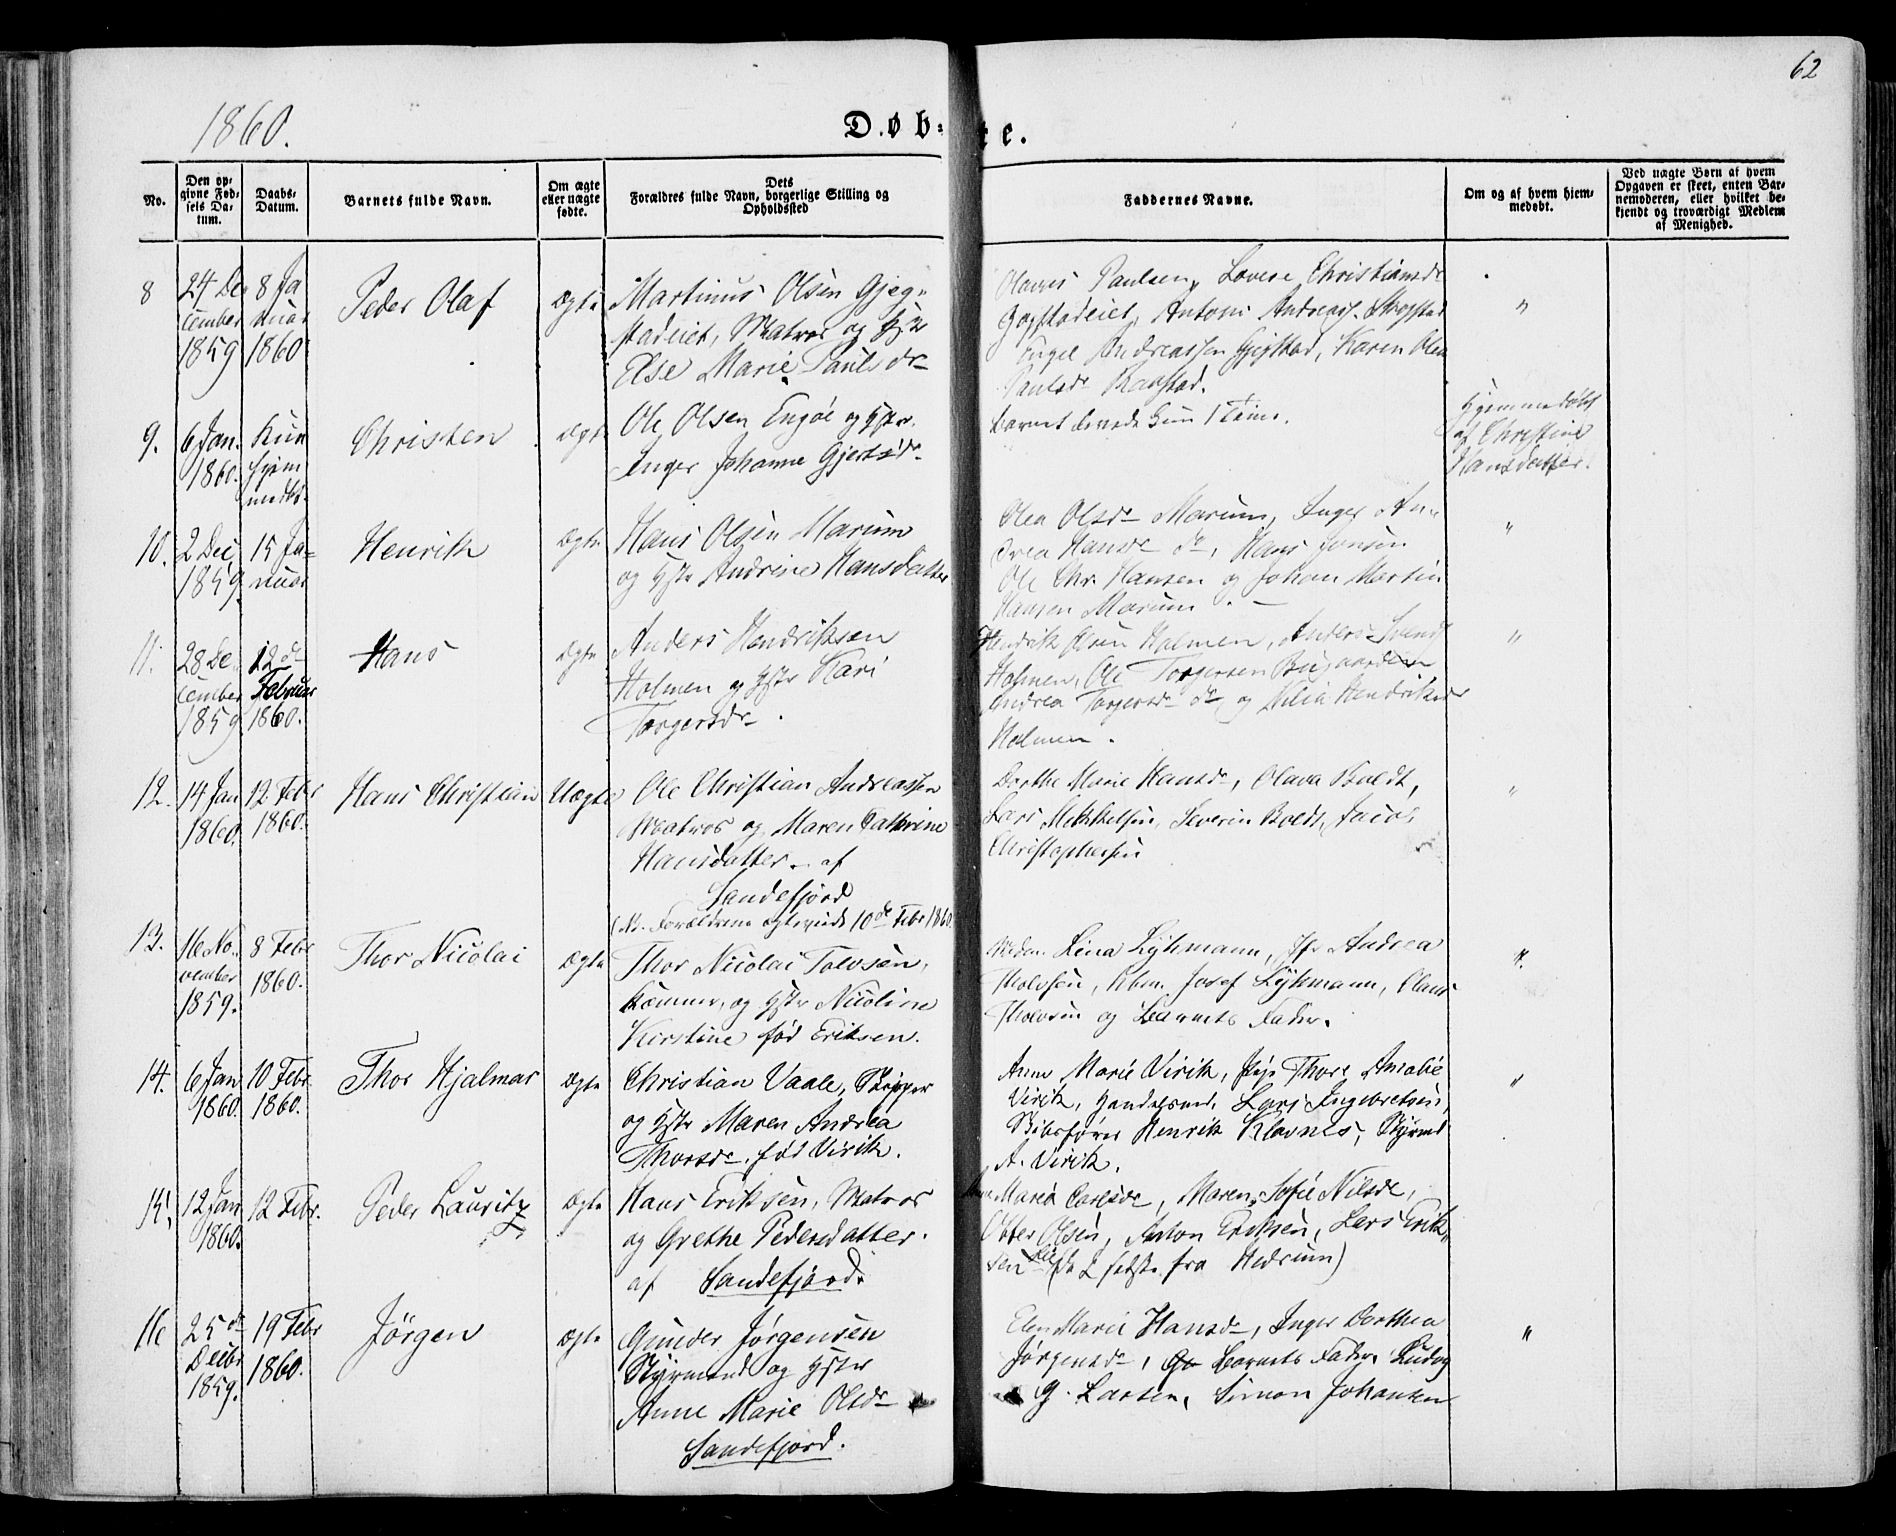 62
1860.
Døb-te.
No.
Den op-
givne Fød-
sels Da-
tum.
Daabs-
Datum.
Barnets fulde Navn.
Om ægte
eller uægte
fødte.
Dets
Forældres fulde Navn, borgerlige Stilling og
Opholdssted
Faddernes Navne.
Om og af hvem hjem-
medøbt.
Ved uægte Børn af hvem
Opgaven er skeet, enten Bar-
nemoderen, eller hvilket be-
kjendt og troværdigt Medlem
af Menighed.
8
24 De
cember
1859
8 Ja
nuar
1860
Peder Olaf
Ægte
Martinus Olsen Gjeg-
stadeiet, Matros og Hstr
Else Marie Paulsdr
Paulsen, Lovise Christiansdr
Gogstadeiet, Antoni Andreas.
Engel Andreassen Gjegstad, Karen Olea
Paulsdr
"
9.
6 Jan.
1860.
Kun
hjem
medbt.
Christen
Ægte
Ole Olsen Engøe og Hstr.
Inger Johanne Gjertsdr
Barnet levede kun 1 Time.
Hjemmedøbt
af Christine
Hansdatter.
10.
2 Dec
1859
15 Ja-
nuar
Henrik
Ægte
Hans Olsen Marum
og Hstr Andrine Hansdatter
Olea Olsdr Marum, Inger An-
drea Hansdr do, Hans Jensen
Ole Chr. Hansen og Johan Martin
Hansen Marum.
"
11.
28 De
cember
1859
12te
Februar
1860.
Hans
Ægte
Anders Hendriksen
Holmen og Hstr Kari
Torgersdr.
Hendrik Olsen Holmen, Anders Svends
Holmen, Ole Torgersen Bugaarden
Andrea Torgersdr do og Nilia Hendriksdr
Holmen.
"
12.
14 Jan
1860.
12 Febr
1860.
Hans Christian
Uægte
Ole Christian Andreassen
Matros og Maren Cathrine
Hansdatter - af
Sandefjord
(NB. Forældrene ægteviede 10de Febr 1860.
Dorthe Marie Hansdr, Olava Boldt,
Lars Mikkelsen, Severin Boldt, Jacob
Christophersen
"
13.
16 No-
vember
1859.
8 Febr
1860.
Thor Nicolai
Ægte
Thor Nicolai Tolvsen,
og Hstr Nicoline
Kirstine fød Eriksen.
Madm. Lina Lykmann, Jfr Andrea
Tholvsen, Kbm. Josef Lykmann, Claus
Tholvsen og Barnets Fader.
"
14.
6 Jan
1860.
10 Febr.
1860.
Thor Hjalmar
Ægte
Christian Vaale, Skipper
og Hstr Maren Andrea
Thorsdr. fød Virik.
Anne Marie Virik, Pige Thore Amalie
Virik, Handelsmd. Lars Ingebretsen,
Skibsfører Henrik Klavnes, Styrmd
A. Virik.
"
15.
12 Jan
1860.
12 Febr.
Peder Lauritz
Ægte
Hans Eriksen, Matros
og Grethe Pedersdatter.
af Sandefjord.
Maria Carlsdr, Maren Sofie Nilsdr,
Otter Olsen, Anton Eriksen, Lars Erik-
sen (de 2 sidste fra Hedrum)
16
25de
Decbr
1859.
19 Febr
1860.
Jørgen
Ægte
Gunder Jørgensen
Styrmand og Hstr
Anne Marie Olsdr
Sandefjord.
Elen Marie Hansdr, Inger Dorthea
Jørgensdr, Barnets Fader. Ludvig
G. Larsen, Simon Johansen
"